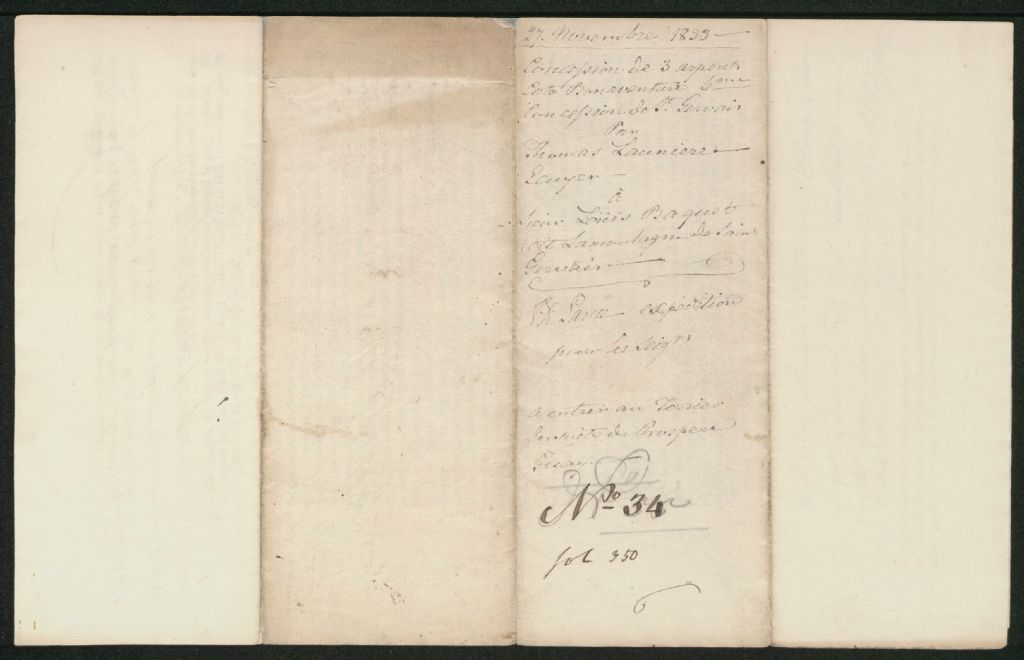 27. Novembre 1833
Concession de 3 arpents
Cote Bonaventure 6eme
Concession de St. Gervais
Par
Thomas Launiere
Ecuyer
à
Sieur Loüis Baquet
dit Lamontagne de Saint
Gervais
expédition
pour les Seigrs
à entrer au Terrier
Ensuite de Prospere
No. 34
fol 350